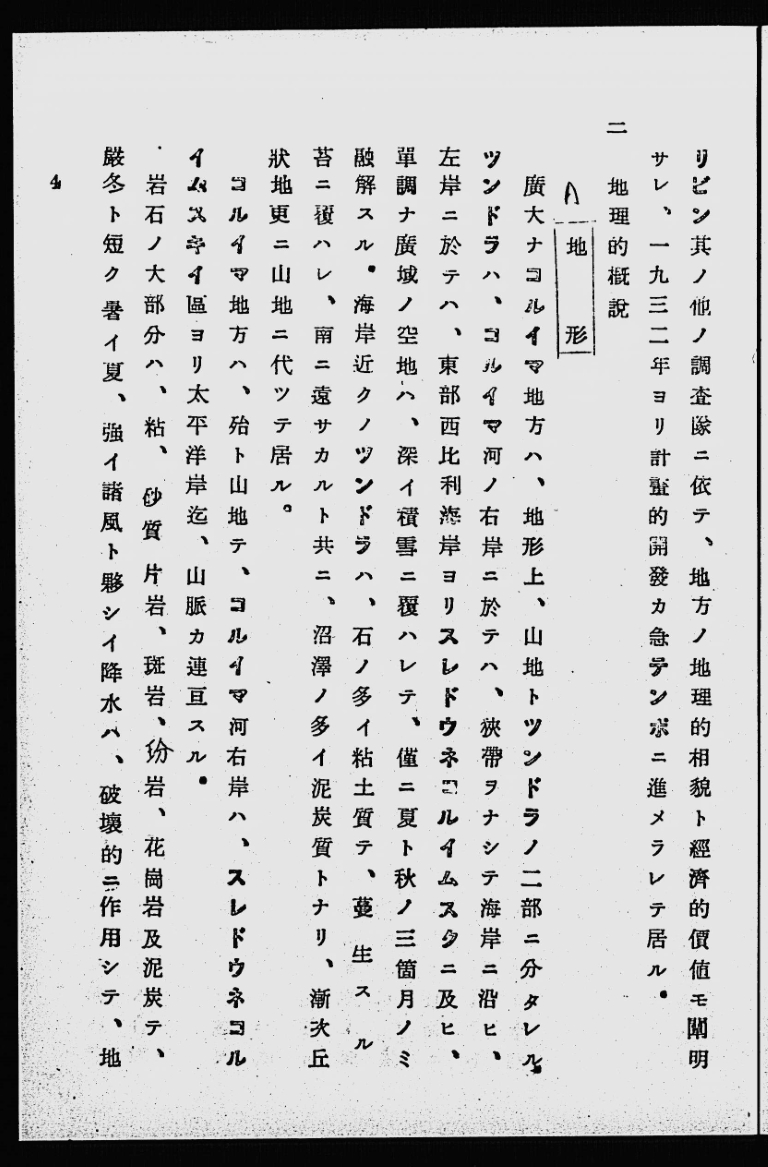 リビン其ノ他ノ調査隊ニ依テ、地方ノ地理的相貌ト經濟的價値モ闡明
サレ、一九三二年ヨリ計畫的開發カ急テンポニ進メラレテ居ル。
二 地理的概說
A 地形
廣大ナコルイマ地方ハ、地形上、山地トツンドラノ二部ニ分タレル。
ツンドラハ、コルイマ河ノ右岸ニ於テハ、狹帶ヲナシテ海岸ニ沿ヒ、
左岸ニ於テハ、東部西比利海岸ヨリスレドウネコルイムスクニ及ヒ、
單調ナ廣域ノ空地ハ、深イ積雪ニ覆ハレテ、僅ニ夏ト秋ノ三箇月ノミ
融解スル。海岸近クノツンドラハ、石ノ多イ粘土質テ、蔓生スル
苔ニ覆ハレ、南ニ遠サカルト共ニ、沼澤ノ多イ泥炭質トナリ、漸次丘
狀地更ニ山地ニ代ツテ居ル。
コルイマ地方ハ、殆ト山地テ、コルイマ河右岸ハ、スレドウネコル
イムスキイ區ヨリ太平洋岸迄、山脈カ連亘スル。
岩石ノ大部分ハ、粘、砂質片岩、斑岩、玢岩、花崗岩及泥炭テ、
嚴冬ト短ク暑イ夏、强イ諸風ト夥シイ降水ハ、破壞的ニ作用シテ、地
4